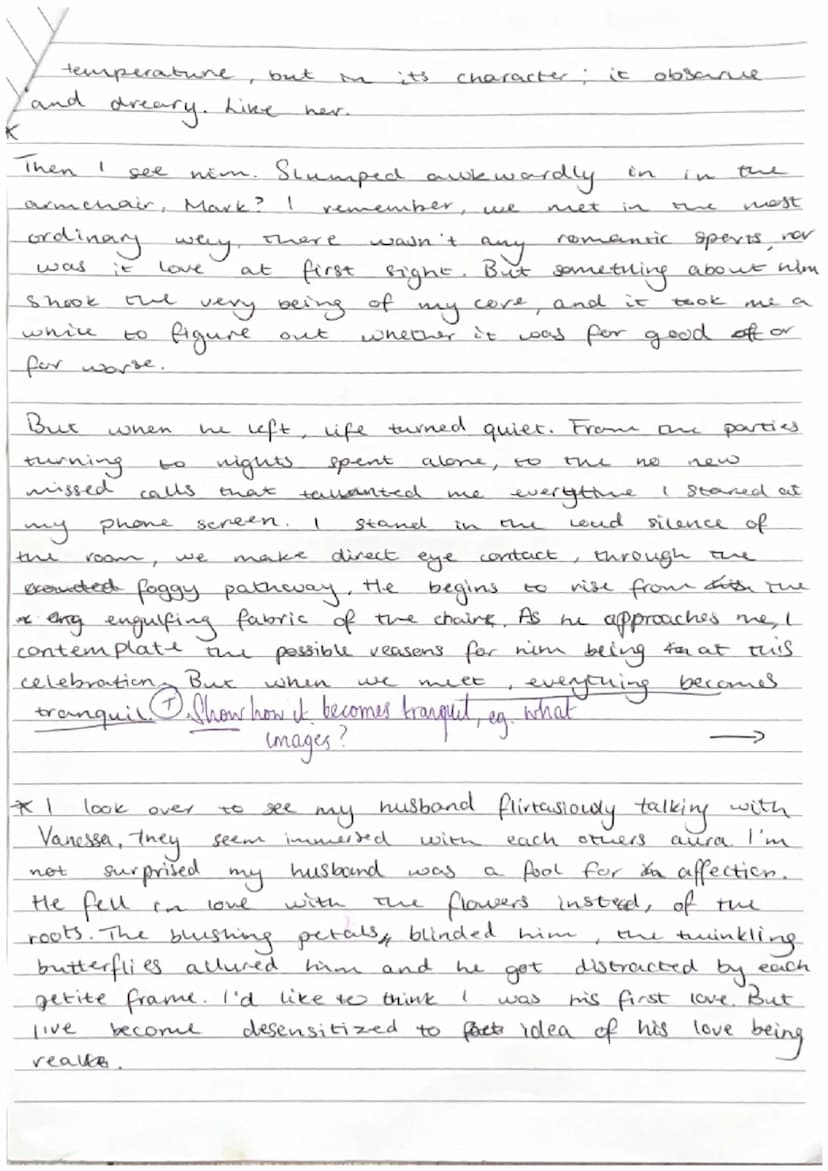 temperature, but in its character; it obscure
and dreary. Like her.
*
Then I see him. Slumped awkwardly in in the
armchair, Mark? I remember, we met in the most
ordinary way, there wasn't any romantic sperts, nor
was it love at first sight. But something about him
shook the very being of my core, and it took me a
while to figure out whether it was for good of or
for worse.
But when he left, life turned quiet. From the parties
turning to nights spent alone, to the no new
missed calls that me everytime I stared at
my phone screen. I stand in the loud silence of
the room, we make direct eye contact, through the
crowded foggy pathway. He begins to rise from the
eng engulfing fabric of the chairs. As he approaches me, I
contemplate the possible reasons for him being at this
celebration. But when we meet, everything becomes
tranquil. (T). Show how it becomes tranquil, eg. what
images? →
* I look over to see my husband flirtasiously talking with
Vanessa, they seem immersed with each others aura. I'm
not surprised my husband was a fool for affection.
He fell in love with the flowers instead, of the
roots. The blushing petals, blinded him, the twinkling
butterflies allured him and he got distracted by each
petite frame. I'd like to think I was his first love. But
I've become desensitized to idea of his love being
real.